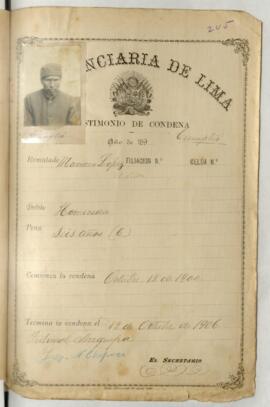 205
NCIARIA DE LIMA
STIMONIO DE CONDENA
Cumplió
Año de 189
Cumplió
Rematado Mariano Lopez FILIACION N.º CELDA N.º
Delito Homicidio
Pena Seis años (6)
Comienza la condena Octubre 12 de 1900
Termina la condena el 12 de Octubre de 1906
Tribunal Arequipa
EL SECRETARIO